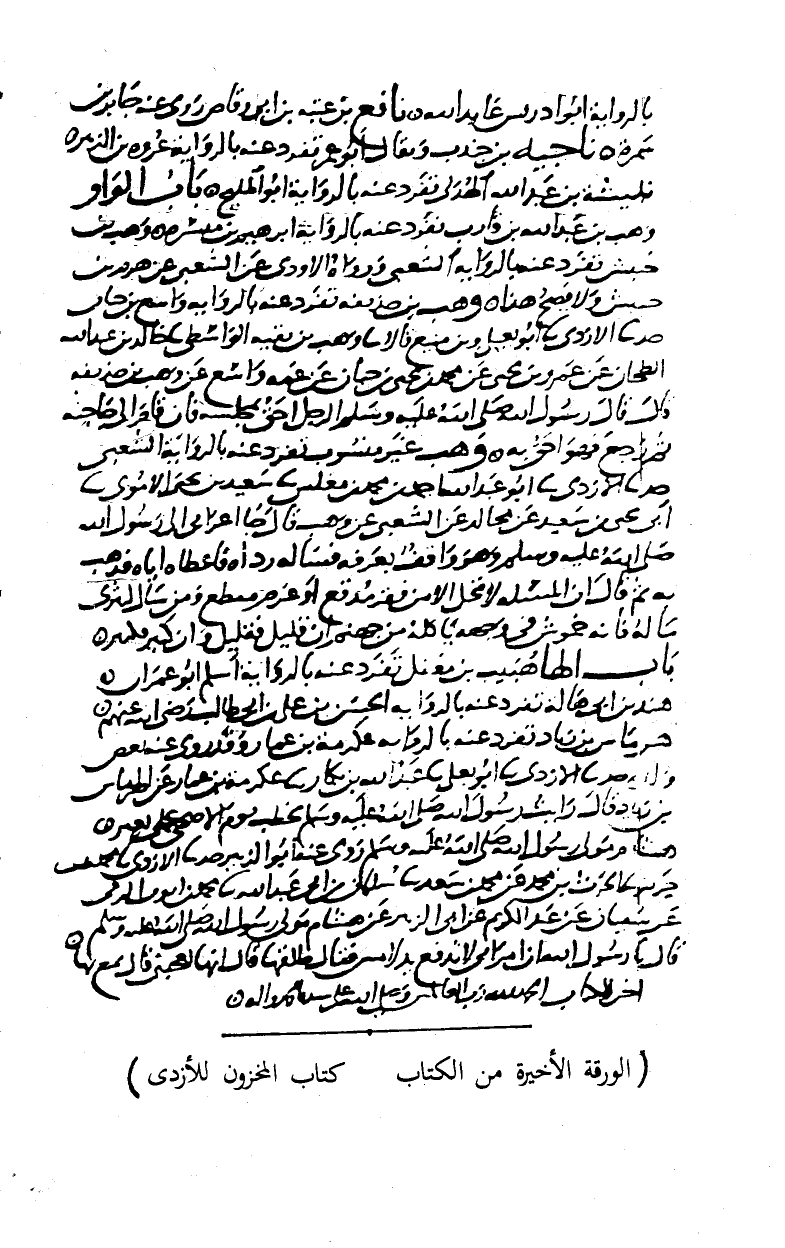 بالرواية ابوا دريس عايد الله ه نافع بن عتبه بن ابي وقاص روى عنه جابر بن
سمره ه ناجيه بن جندب ويقال ابو عمر تفرد عنه بالرواية عروه بن الزبير ه
نبيشة بن عبد الله الهذلي تفرد عنه بالرواية ابو المليح ه باب الواو
وهب بن عبد الله بن قارب تفرد عنه بالرواية ابرهيم بن ميسره ه وهب بن
خنبش تفرد عنه بالروايه الشعبي ورواه الاودي عن الشعبي عن هرم بن
خنبش ولا يصح هذا ه وهب بن حذيفه تفرد عنه بالروايه واسع بن حبان
حدثنا الازدي ثنا ابو يعلى وبن منيع قالا ثنا وهب بن بقيه الواسطي ثنا خالد بن عبد الله
الطحان عن عمرو بن يحيى عن محمد بن يحيى بن حبان عن عمه واسع عن وهب بن حذيفه
قال قال رسول الله صلى الله عليه وسلم الرجل احق بمجلسه فان قام الى حاجته
ثم رجع فهو احق به ه وهب غير منسوب تفرد عنه بالرواية الشعبي
حدثنا الازدي ثنا ابو عبد الله محمد بن مغلس ثنا سعيد بن يحيى الاموي ثنا
ابي يحيى بن سعيد عن مجالد عن الشعبي عن وهب قال جا اعرابي الى رسول الله
صلى الله عليه وسلم وهو واقف بعرفه فساله رداه فاعطاه اياه فذهب
به ثم قال ان المسئله لا تحل الا من فقر مدقع او غرم مفظع ومن سال ليثري
ماله فانه خموش في وجهه ياكله من جهنم ان قليل فقليل وان كثير فكثير ه
باب الها هبيب بن مغفل تفرد عنه بالرواية اسلم ابو عمران ه
هند بن ابي هالة تفرد عنه بالروايه الحسن بن علي بن ابي طالب رضي الله عنهم ه
هرماس بن زياد تفرد عنه بالروايه عكرمة بن عمار وقد روى عنه بعض
حدثنا الازدي ثنا ابو يعلى ثنا عبد الله بن بكار ثنا عكرمه بن عمار عن الهرماس
بن زياد قال رايت رسول الله صلى الله عليه وسلم يخطب يوم الاضحى على بعير ه
هشام مولى رسول الله صلى الله عليه وسلم روى عنه ابو الزبير حدثنا الازدي ثنا محمد بن
جرير ثنا الحرث بن محمد عن محمد بن سعد ثنا سليمان بن عبد الله ثنا محمد بن ايوب الرقي
عن سفيان عن عبد الكريم عن ابي الزبير عن هشام مولى رسول الله صلى الله عليه وسلم
قال يا رسول الله ان امراتي لا تدفع يد لامس فقال طلقها قال انها تعجبني قال تمتع بها ه
اخر الكتاب الحمد لله رب العالمين وصلى الله على سيدنا محمد واله ه
( الورقة الأخيرة من الكتاب كتاب المخزون للأزدى )